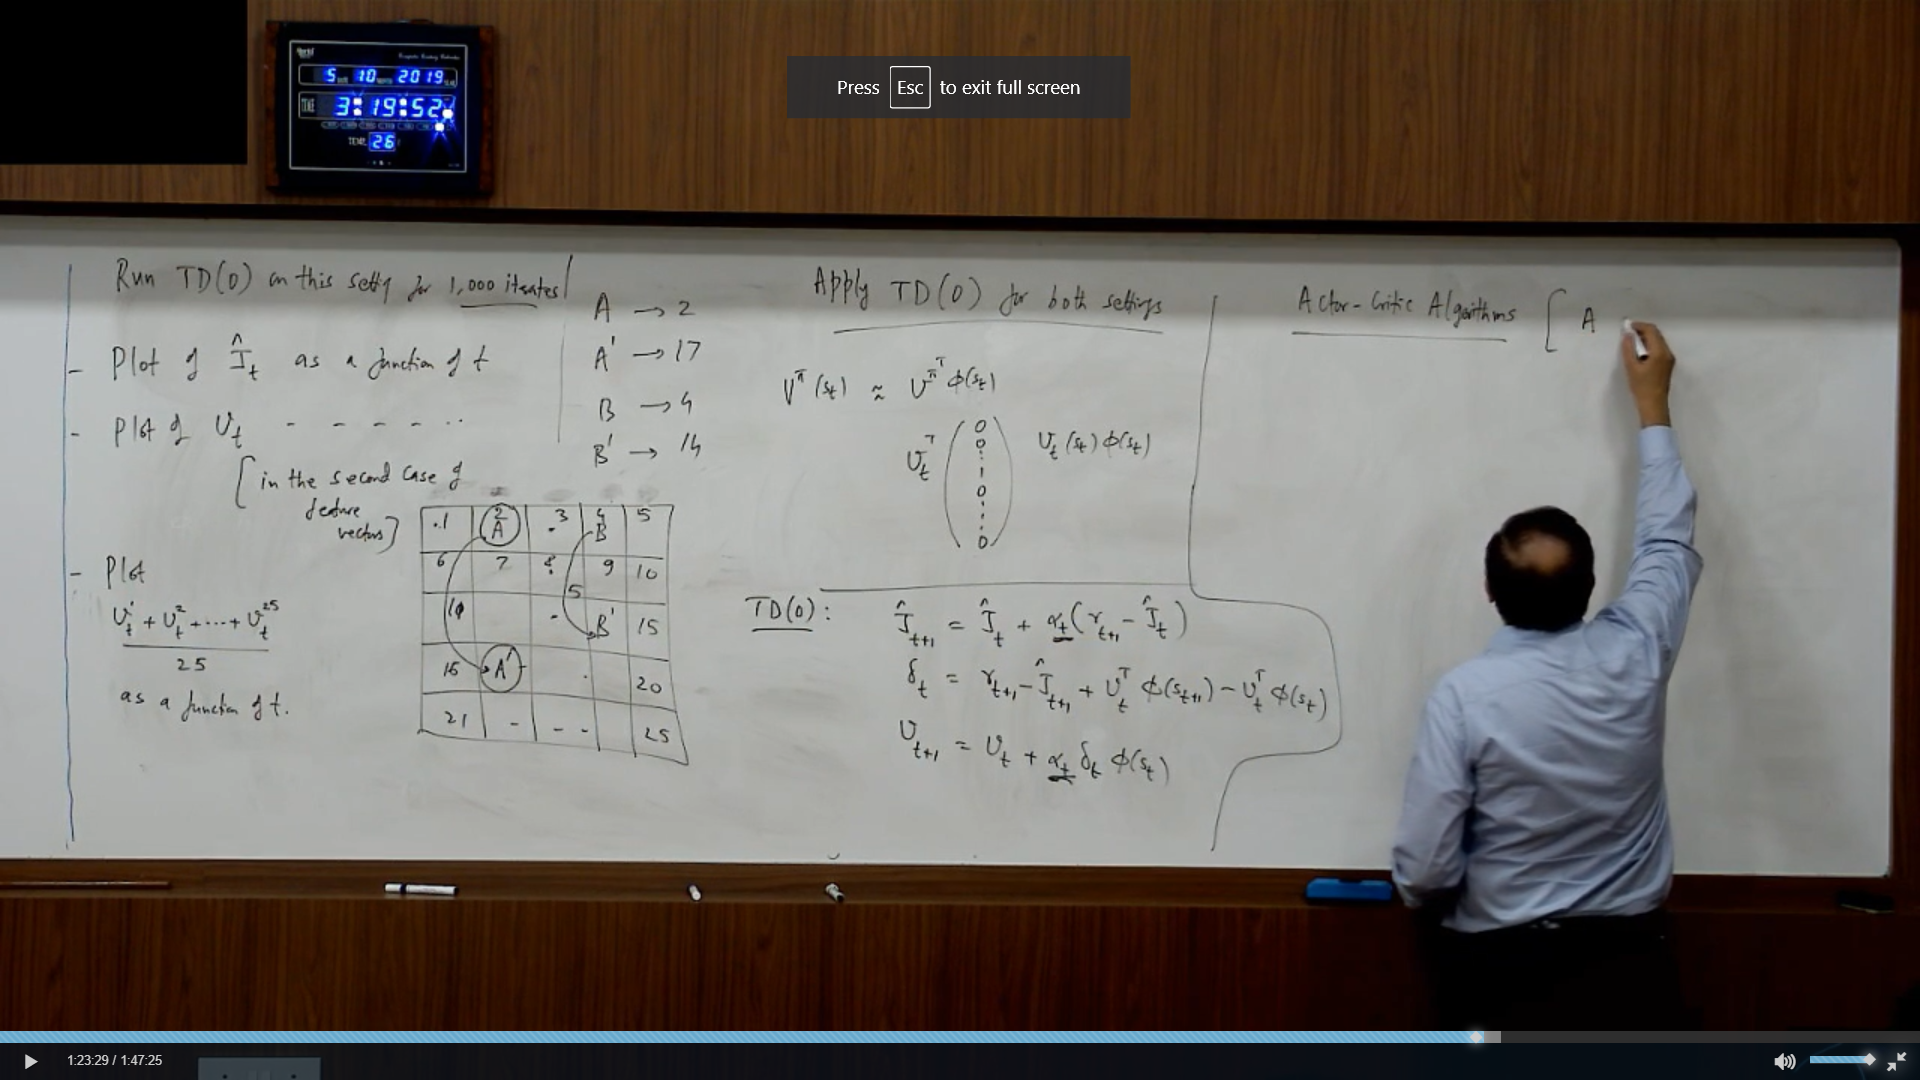 5 10 2019
TIME 3:19:52
TEMP. 26
Press Esc to exit full screen
Run TD(0) on this setting for 1,000 iterates
- Plot of Ĵ_t as a function of t
- Plot of v_t - - - - - ..
[in the second case of
feature
vectors]
- Plot
v_t^1 + v_t^2 + ... + v_t^25
25
as a function of t.
A → 2
A' → 17
B → 4
B' → 14
.1 2 A .3 4 B 5
6 7 8 9 10
10 5 B' 15
16 A' 20
21 - - - 25
Apply TD(0) for both settings
V^π(s_t) ≈ v^π^T φ(s_t)
v_t^T (0 0 : 1 0 : : 0) v_t(s_t) φ(s_t)
TD(0): Ĵ_t+1 = Ĵ_t + α_t(r_t+1 - Ĵ_t)
δ_t = r_t+1 - Ĵ_t+1 + v_t^T φ(s_t+1) - v_t^T φ(s_t)
v_t+1 = v_t + α_t δ_t φ(s_t)
Actor-Critic Algorithms [ A
1:23:29 / 1:47:25